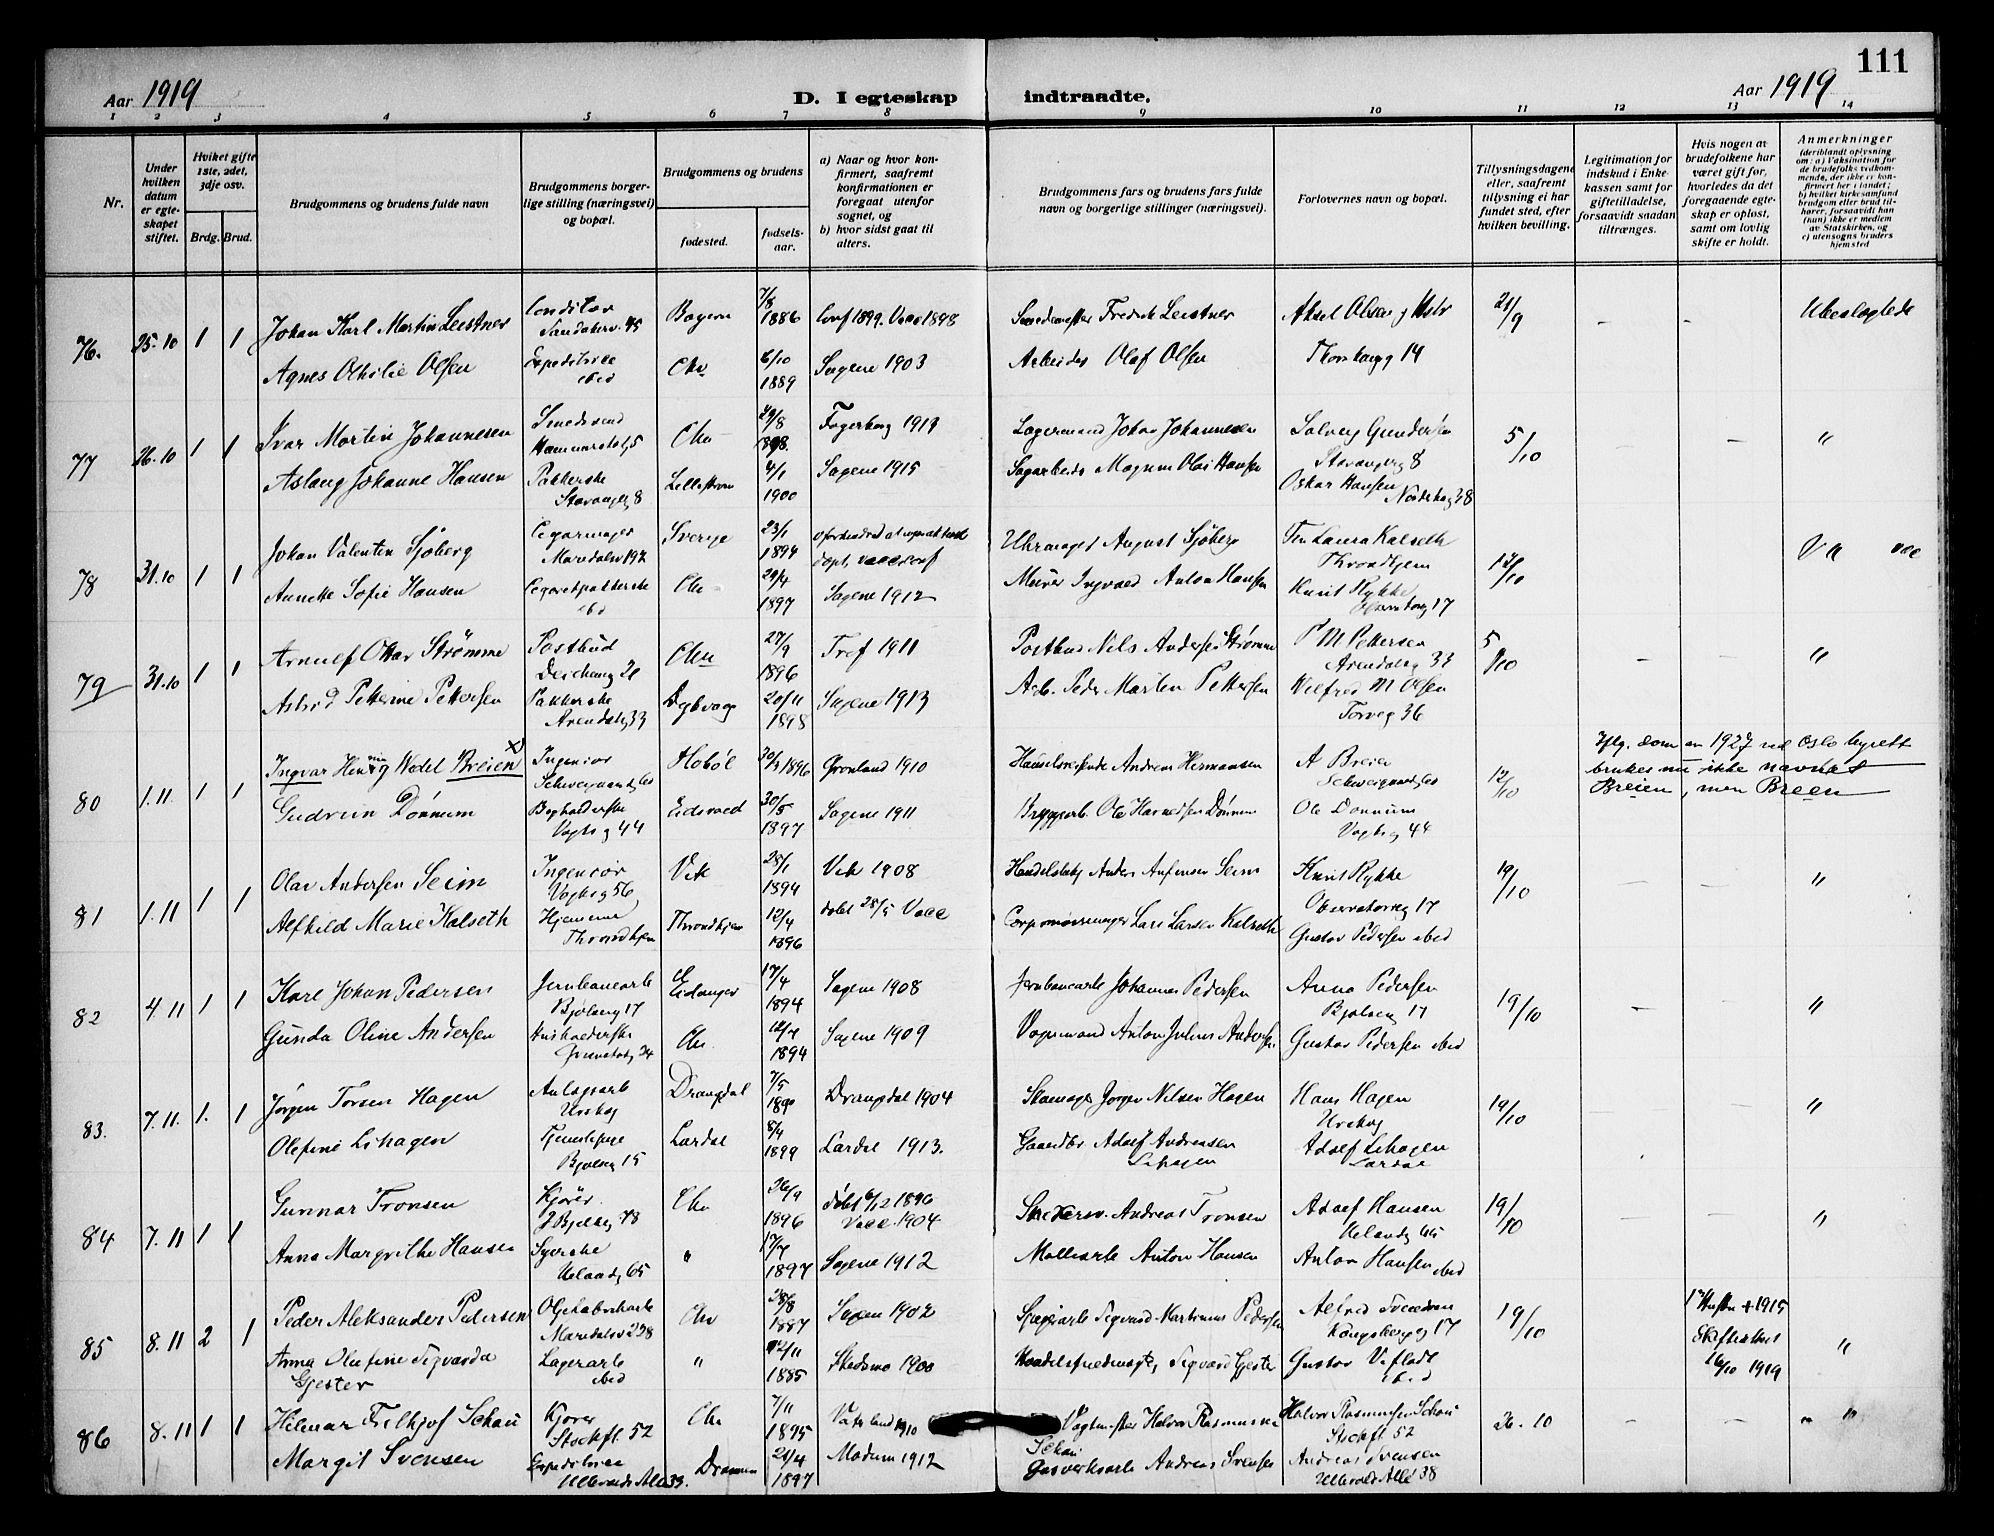 111
Aar 1919
D. I egteskap indtraadte.
Aar 1919
1 2 3 4 5 6 7 8 9 10 11 12 13 14
Nr.
Under hvilken datum er egteskapet stiftet.
Hvilket gifte 1ste, 2det, 3dje osv.
Brdg. Brud.
Brudgommens og brudens fulde navn
Brudgommens borgerlige stilling (næringsvei) og bopæl.
Brudgommens og brudens
fødested.
fødselsaar.
a) Naar og hvor konfirmert, saafremt konfirmationen er foregaat utenfor sognet, og
b) hvor sidst gaat til alters.
Brudgommens fars og brudens fars fulde navn og borgerlige stillinger (næringsvei).
Forlovernes navn og bopæl.
Tillysningsdagene eller, saafremt tillysning ei har fundet sted, efter hvilken bevilling.
Legitimation for indskud i Enkekassen samt for giftetilladelse, forsaavidt saadan tiltrænges.
Hvis nogen av brudefolkene har været gift før, hvorledes da det foregaaende egteskap er opløst, samt om lovlig skifte er holdt.
Anmerkninger
(deriblandt oplysning om: a) Vaksination for de brudefolks vedkommende, der ikke er konfirmert her i landet; b) hvilket kirkesamfund brudgom eller brud tilhører, forsaavidt han (hun) ikke er medlem av Statskirken, og c) utensogns bruders hjemsted
76. 25.10 1 1 Johan Karl Martin Leistner Conditor Sandakerv. 45 Bayern 7/8 1886 Conf 1899. Vacc 1898 Smedemester Fredrik Leistner Aksel Olsen 21/9 - - Ubeslægtede
Agnes Othilie Olsen Expeditrice ibid Chr 6/10 1889 Sagene 1903 Arbeider Olaf Olsen 14
77 26.10 1 1 Ivar Martin Johannesen Smedsvend Chr 1898. Fagerborg 1919 Lagermand Johan Johannesen Solveig Gundersen Stavangerg 8 5/10 - - "
Aslaug Johanne Hansen Pakkerske Stavangerg 8 Lillestrøm 4/1 1900 Sagene 1915 Sagarbeider Magnus Olai Hansen Oskar Hansen 38
78 31.10 1 1 Johan Valentin Sjøberg Cigarmager Maridalsv 192 Sverige 23/1 1894 Uhrmager August Sjøberg Laura Kalseth Throndhjem 12/10 vac
Annette Sofie Hansen Cigaretpakkerske ibid Chr 29/4 1897 Sagene 1912 Murer Ingvald Anton Hansen Knut Rykke 17
79 31.10 1 1 Arnulf Oskar Strømme Postbud Deichmansg 21 Chr 27/9 1896 Tref 1911 Postbud Nils Andersen Strømme P M Pettersen Arendalsg 33 5/10 - - "
Astrid Petterine Pettersen Pakkerske Arendalsg 33 Dybvaag 20/11 1898 Sagene 1913 Arb. Peder Martin Pettersen Wilfred M Olsen Torvg 36
80 1.11 1 1 Ingvar Henning Wedel Breien x) Ingeniør Schweigaardsg 60 Hobøl 30/3 1896 Grønland 1910 Handelsreisende Andreas Hermansen A Breien Schweigaardsg 60 12/10
Iflg. dom av 1927 ved Oslo byrett
brukes nu ikke navnet
Breien, men Breen
Gudrun Dønnum Bogholderske Vogtsg 44 Eidsvold 30/5 1897 Sagene 1911 Ole Dønnum Vogtsg 44
81 1.11 1 1 Olav Andersen Seim Ingeniør Vogtsg 56 Vik 28/1 1894 Vik 1908 Anders Anfinsen Seim Knut Rykke Observatorieg 17 19/10 - - "
Alfhild Marie Kalseth Hjemme Throndhjem Throndhjem 12/4 1896 døbt 28/5 Vacc Lars Larsen Kalseth Gustav Pedersen ibid
82 4.11 1 1 Karl Johan Pedersen Jernbanearb Bjølseng 17 Eidanger 17/4 1894 Sagene 1908 Jernbanearb Johannes Pedersen Anna Pedersen Bjølseng 17 19/10 - - "
Gunda Oline Andersen Chr. 12/4 1894 Sagene 1909 Vognmand Anton Julius Andersen Gustav Pedersen ibid
83. 7.11. 1. 1 Jørgen Torsen Hagen Anlægsarb Urskog Drangdal 7/5 1890 Drangdal 1904 Skomager Jørgen Nilsen Hagen Hans Hagen Urskog 19/10 - - "
Olefine Lihagen Tjenestepige Bjølseng 15 Lardal 8/4 1899 Lardal 1913. Gaardbr. Adolf Andreassen Lihagen Adolf Lihagen Lardal
84 7.11 1 1 Gunnar Tronsen Kjører Bjølseng 48 Chr 26/9 1896 døbt 6/12 1896 Vacc 1904 Andreas Tronsen Adolf Hansen Uelandsg 65 19/10 - - "
Anna Margrethe Hansen Syerske Uelandsg 65 " 17/7 1897 Sagene 1912 Møllearb Anton Hansen Anton Hansen ibid
85 8.11 2 1 Peder Aleksander Pedersen Oljefabrikarb Maridalsv 238 Chr 28/8 1887 Sagene 1902 Sigvard Martinus Pedersen Alfred Svendsen Kongsbergg 17 19/10 1ste Hustru + 1915 Skifteattest 16/10 1919 "
Anna Olefine Sigvarda Gjester Lagerarb ibid " 12/11 1885 Skedsmo 1900 Sigvard Gjester Gustav ibid
86 8.11 1 1 Hilmar Fritjof Schau Kjører Stockfl. 52 Chr 7/11 1895 Vaterland 1910 Vagtmester Halvor Rasmussen Schau Halvor Rasmussen Schau Stockfl 52 26.10 - - "
Margit Svensen Expeditrice Ullevaals Alle 38. Drammen 21/4 1897 Modum 1912 Gasverksarb Andreas Svensen Andreas Svensen Ullevaals Alle 38